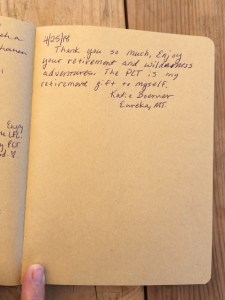 4/25/18
Thank you so much, Enjoy
your retirement and wilderness
adventures. The PCT is my
retirement gift to myself.
Katie
Eureka, MT.
Enjoy
PCT